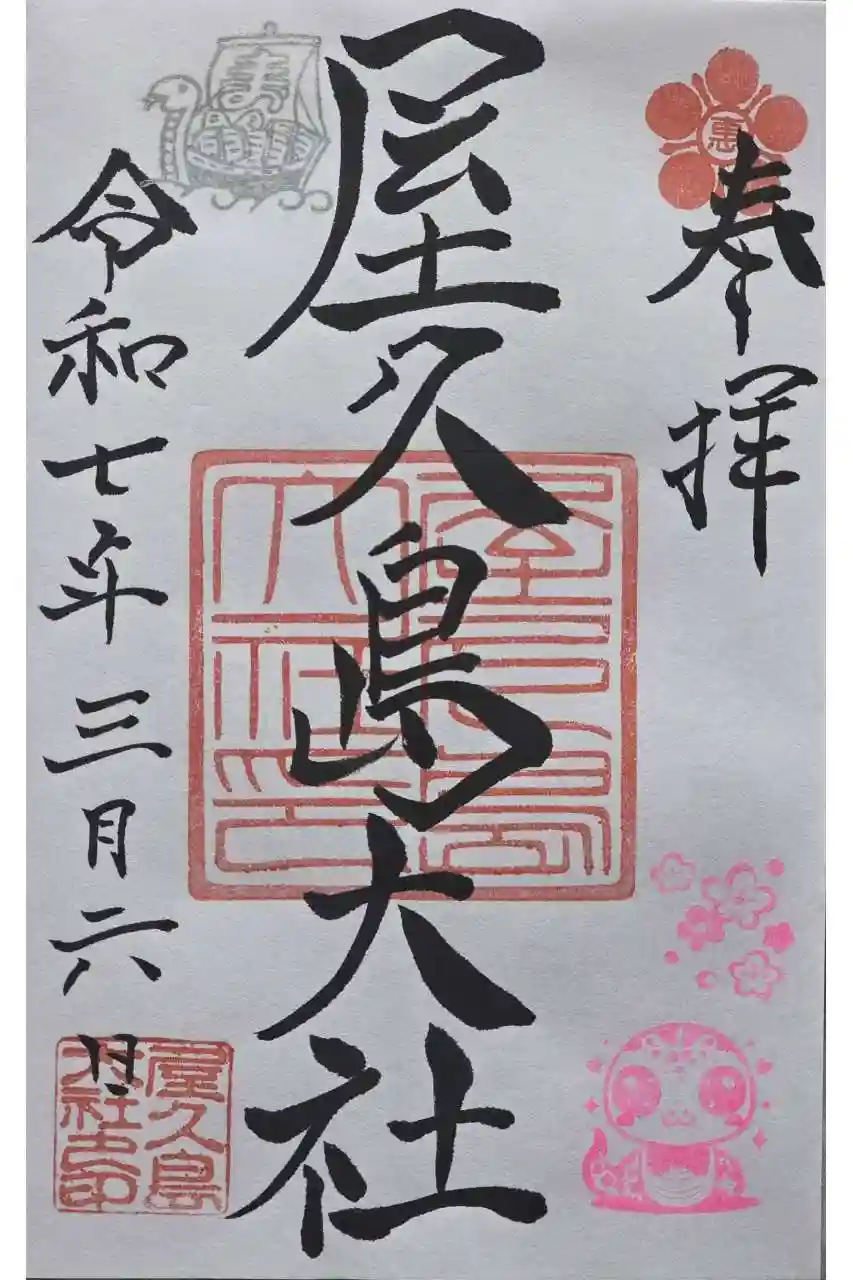 奉拝
惠
屋久島大社
屋久島大社之印
ま
令和七年三月六日
屋久島
大社之印